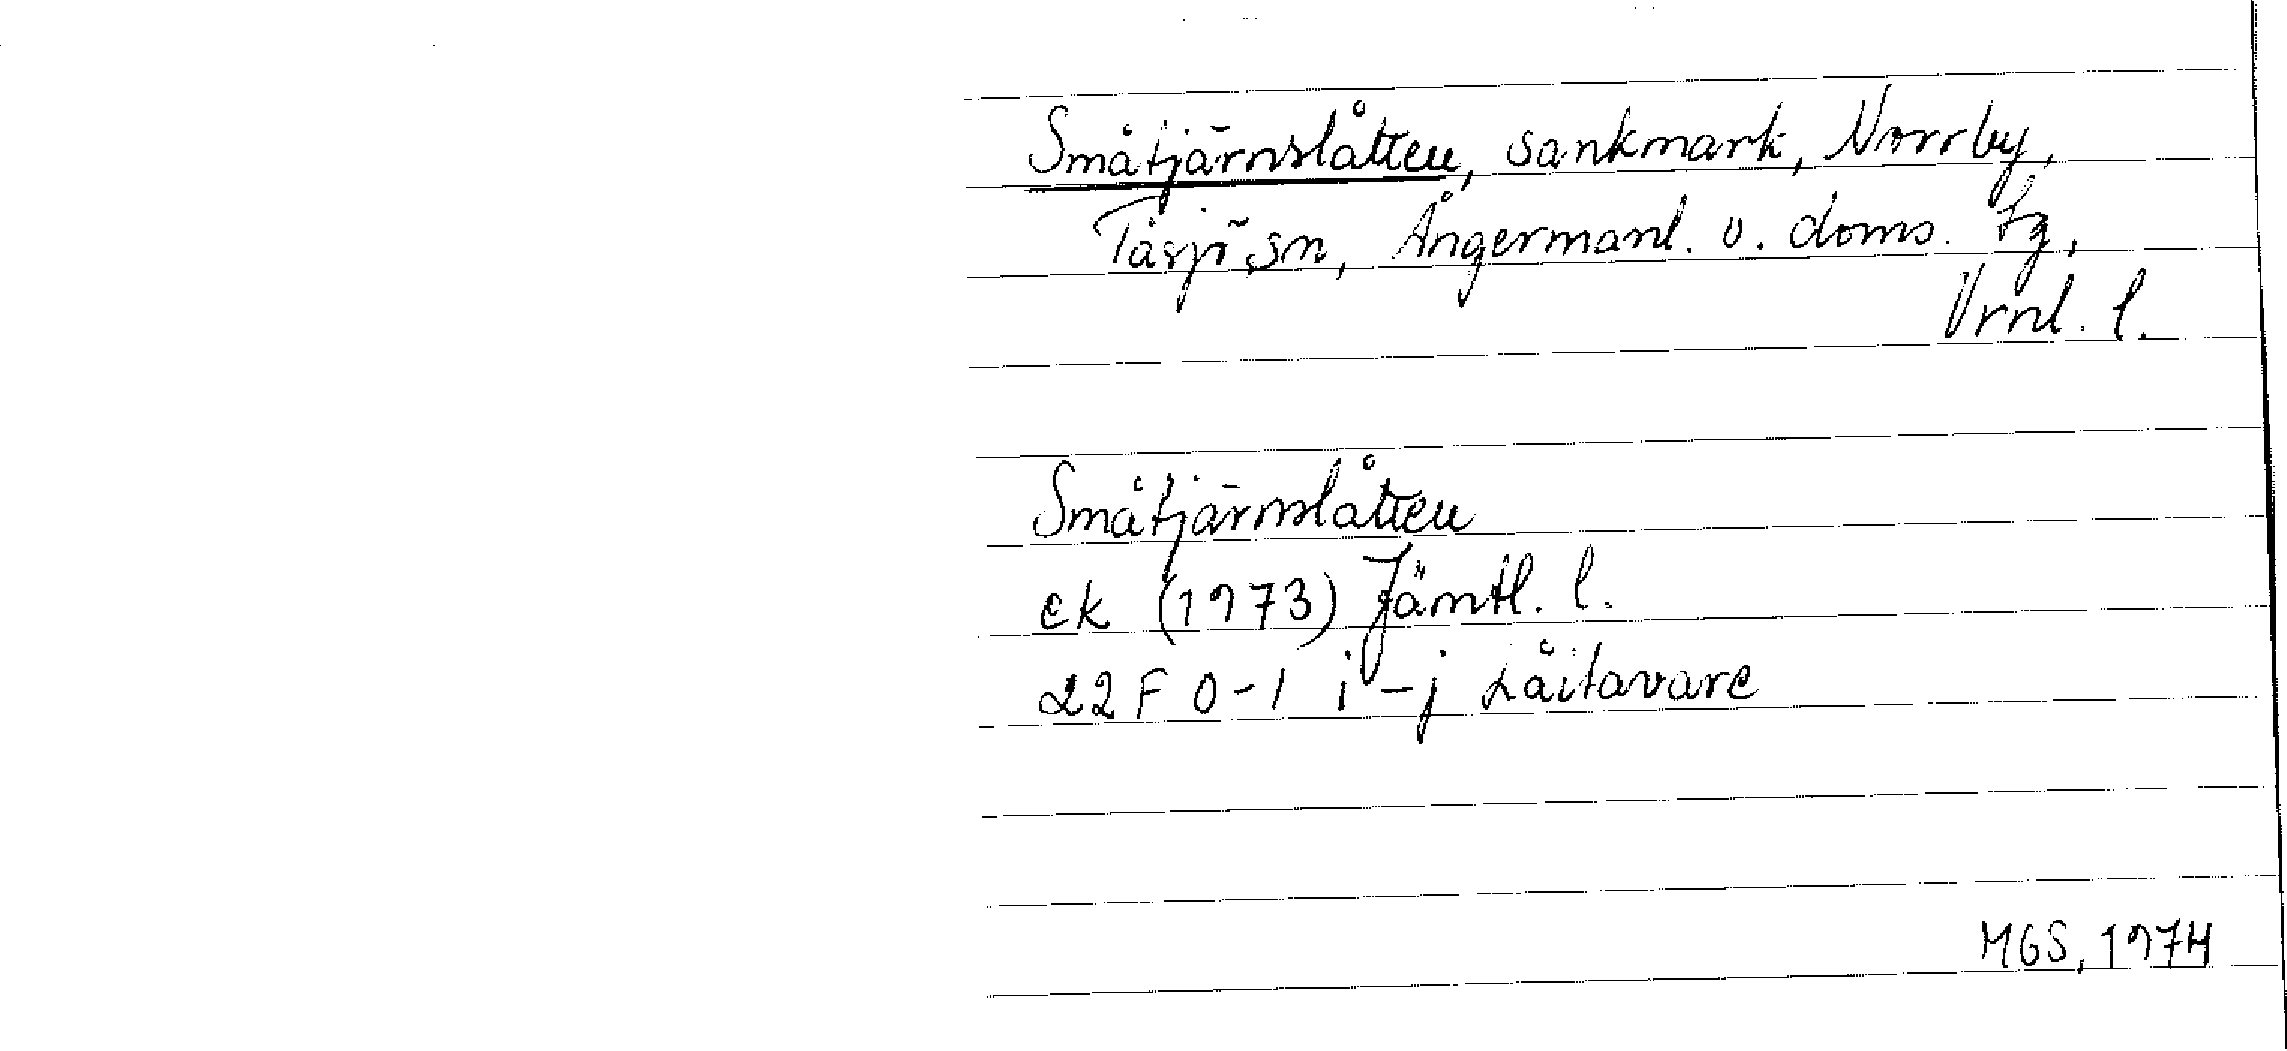 Småtjärnslåtten, sankmark, Norrby,
Tåsjö sn, Ångermanl. v. doms. tg,
Vrnl. l.
Småtjärnslåtten
ek (1973) Jämtl. l.
22F 0-1 i-j Låitavare
MGS, 1974